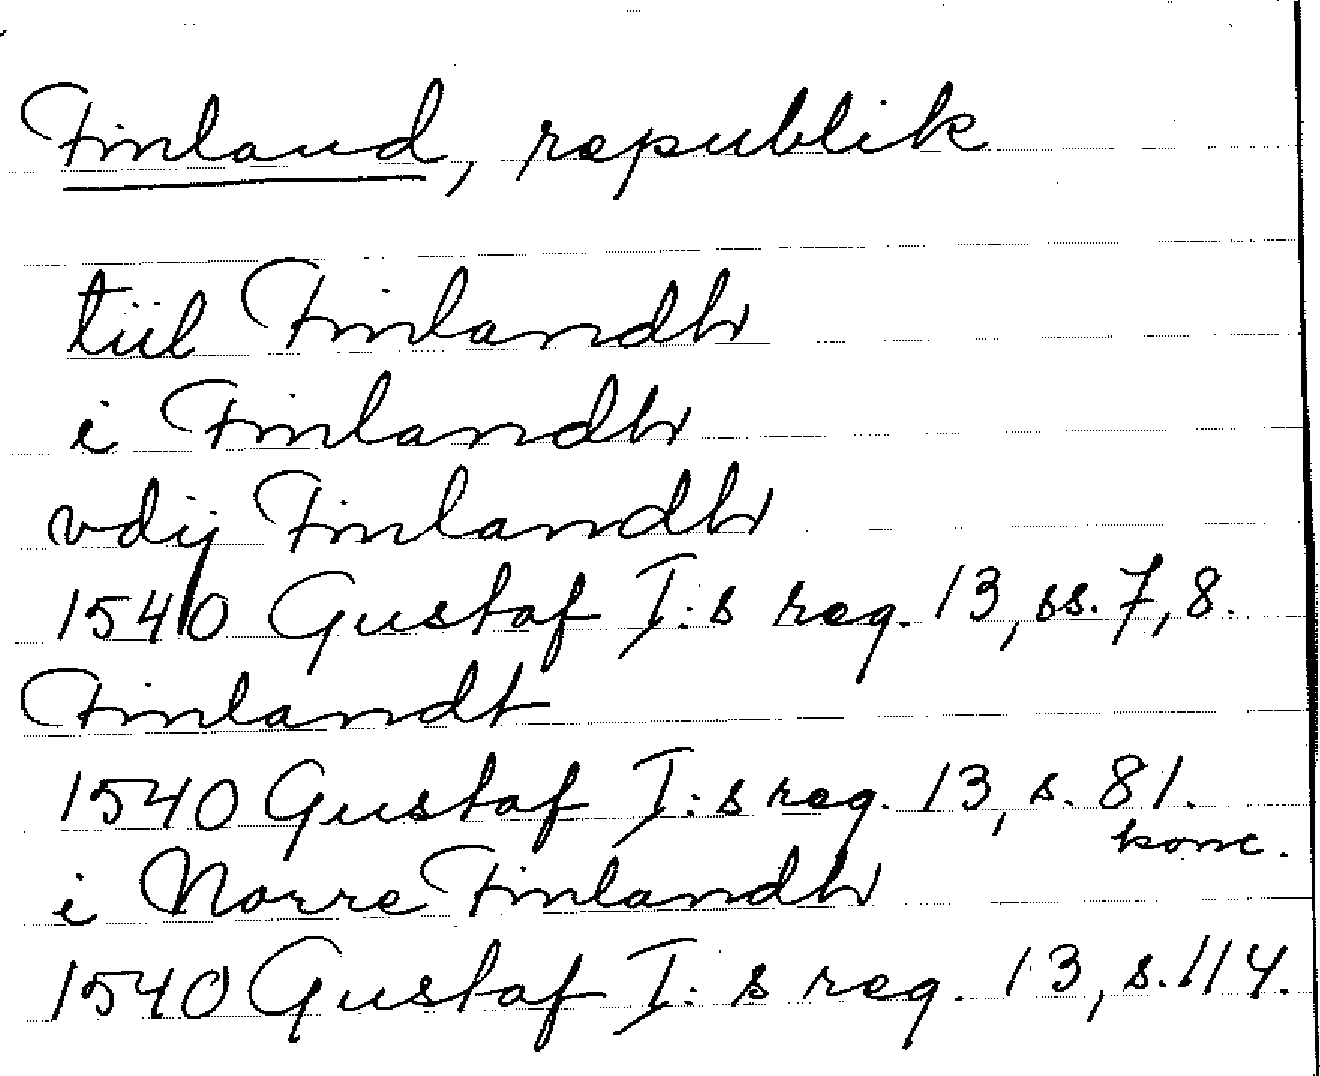 Finland, republik
tiil Finlandh
i Finlandh
vdij Finlandh
1540 Gustaf I:s reg. 13, ss. 7, 8.
Finlandt
1540 Gustaf I:s reg. 13, s. 81.
konc.
i Norre Finlandh
1540 Gustaf I:s reg. 13, s. 114.